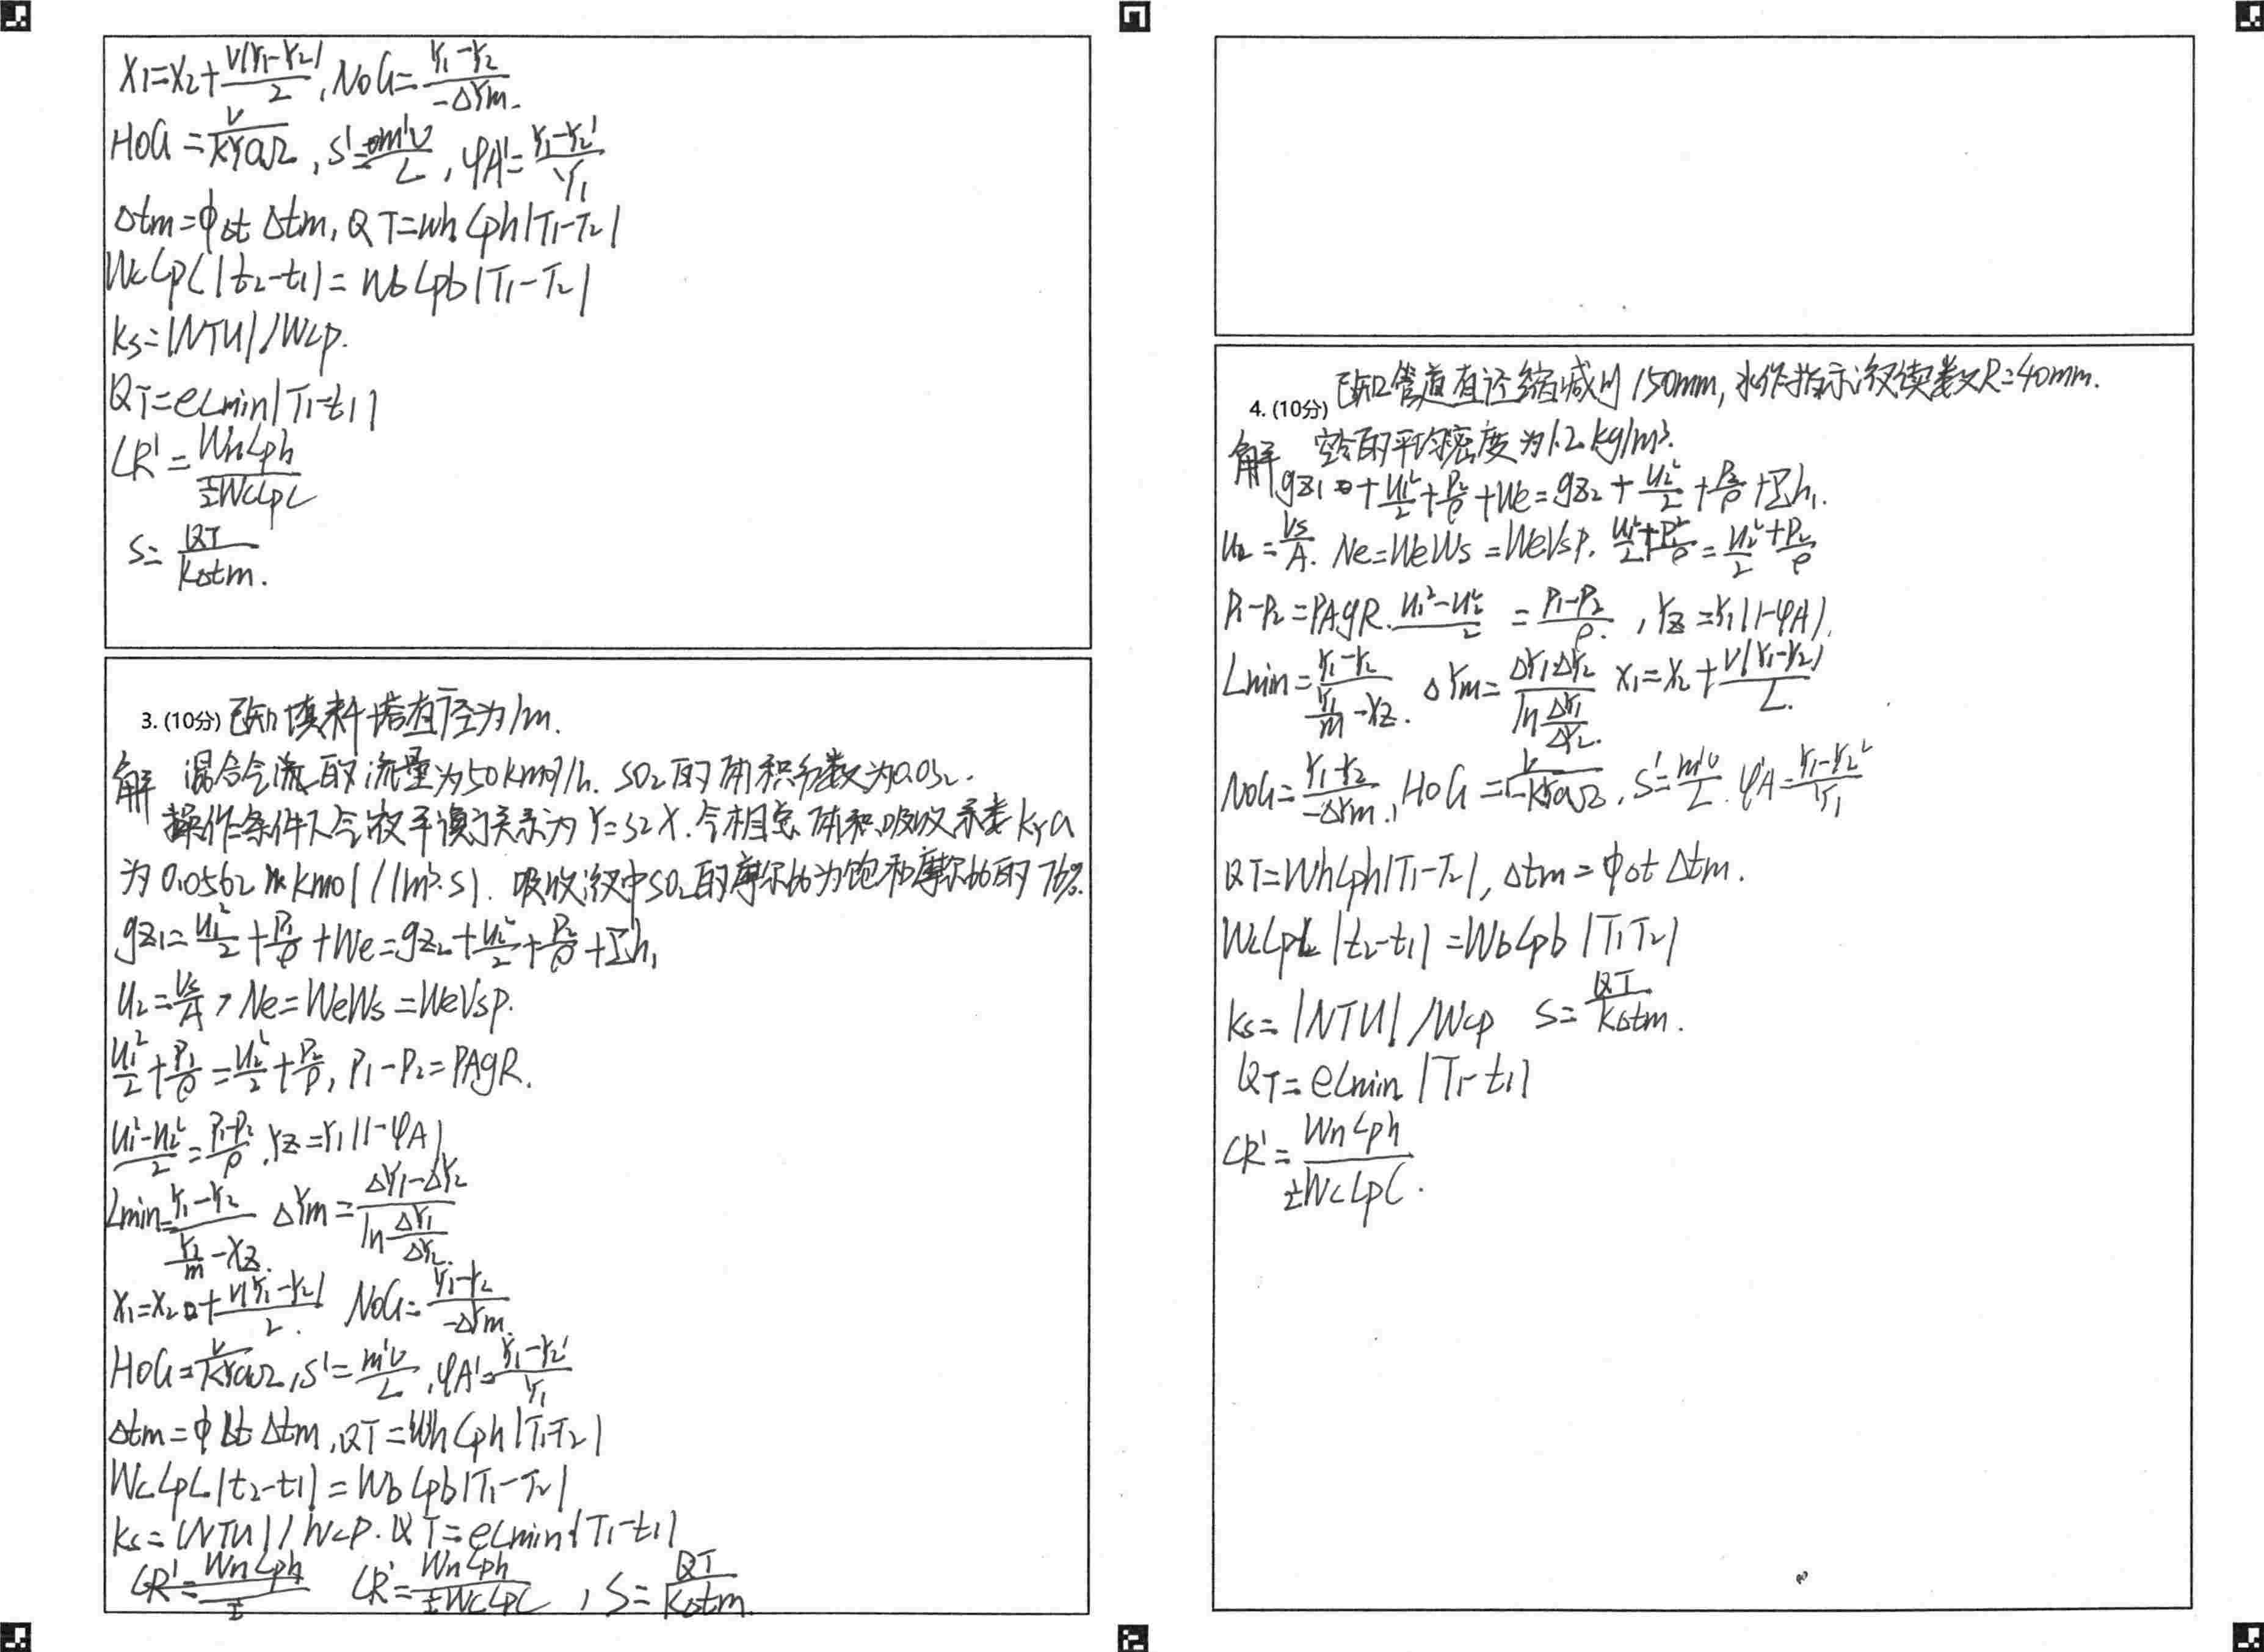 X1=X2+V(Y1-Y2)/2, NOG=Y1-Y2/-ΔYm.
HOG=V/KYaΩ, S'=m'V/L, φA'=Y1-Y2'/Y1
Δtm=φΔt Δtm, QT=Wh Cph|T1-T2|
WcCpC|t2-t1|=WbCpb|T1-T2|
Ks=(NTU)/WCp.
QT=eCmin|T1-t1|
CR'=WhCph/±WcCpC
S=QT/KΔtm.
3. (10分) 已知填料塔直径为1m.
解 混合气流的流量为50kmol/h. SO2的体积分数为0.032.
操作条件下气液平衡关系为Y=32X.气相总体积吸收系数KYa
为0.0562 kmol/(m³·s). 吸收液中SO2的摩尔比为饱和摩尔比的76%.
gz1=u1²/2+P1/ρ+We=gz2+u2²/2+P2/ρ+Σh,
u2=Vs/A, Ne=WeWs=WeVsρ.
u1²/2+P1/ρ=u2²/2+P2/ρ, P1-P2=PAgR.
u1²-u2²/2=P1-P2/ρ, Y2=Y1(1-φA)
Lmin=Y1-Y2/Y1/m-X2. ΔYm=ΔY1-ΔY2/lnΔY1/ΔY2.
X1=X2+V(Y1-Y2)/2. NOG=Y1-Y2/-ΔYm.
HOG=V/KYaΩ, S'=m'V/L, φA'=Y1-Y2'/Y1
Δtm=φΔt Δtm, QT=WhCph|T1-T2|
WcCpC|t2-t1|=WbCpb|T1-T2|
Ks=(NTU)/WCp. QT=eCmin(T1-t1)
CR'=WnCph/± CR'=WnCph/±WcCpC, S=QT/KΔtm.
已知管道直径缩减为150mm,水作指示液读数R=40mm.
4. (10分)
解 空气的平均密度为1.2kg/m³.
gz1+u1²/2+P2/ρ+We=gz2+u2²/2+P2/ρ+Σh,.
u2=Vs/A. Ne=WeWs=WeVsρ. u1²/2+P1²/ρ=u2²/2+P2/ρ
P1-P2=PAgR. u1²-u2²/2=P1-P2/ρ., Y2=Y1(1-φA).
Lmin=Y1-Y2/Y1/m-X2. ΔYm=ΔY1-ΔY2/lnΔY1/ΔY2. X1=X2+V(Y1-Y2)/L.
NOG=Y1-Y2/-ΔYm, HOG=V/KYaΩ, S'=m'V/L. φ'A=Y1-Y2²/Y1
QT=WhCph|T1-T2|, Δtm=φΔt Δtm.
WcCpc|t2-t1|=WbCpb|T1T2|
Ks=|NTU|/WCp S=QT/KΔtm.
QT=eCmin|T1-t1|
CR'=WnCph/±WcCpC.